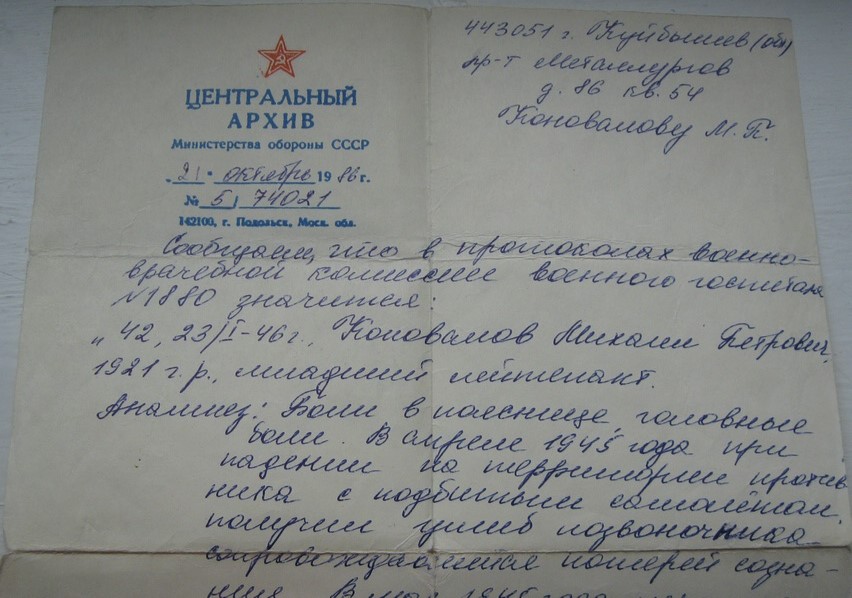 ЦЕНТРАЛЬНЫЙ
АРХИВ
Министерства обороны СССР
„21" октябрь 1986 г.
№ 5/ 74021
142100, г. Подольск, Моск. обл.
443051 г. Куйбышев (обл)
пр-т Металлургов
д. 86 кв. 54
Коновалову М. П.
Сообщаем, что в протоколах военно-
врачебной комиссии военного госпиталя
N1880 значится:
„42, 23/I-46 г., Коновалов Михаил Петрович,
1921 г.р., младший лейтенант.
Анамнез: Боли в пояснице, головные
боли. В апреле 1945 года при
падении на территории против
ника с подбитым самолётом
получил ушиб позвоночника
сопровождавшийся потерей созна-
ния. В мае 1945 года